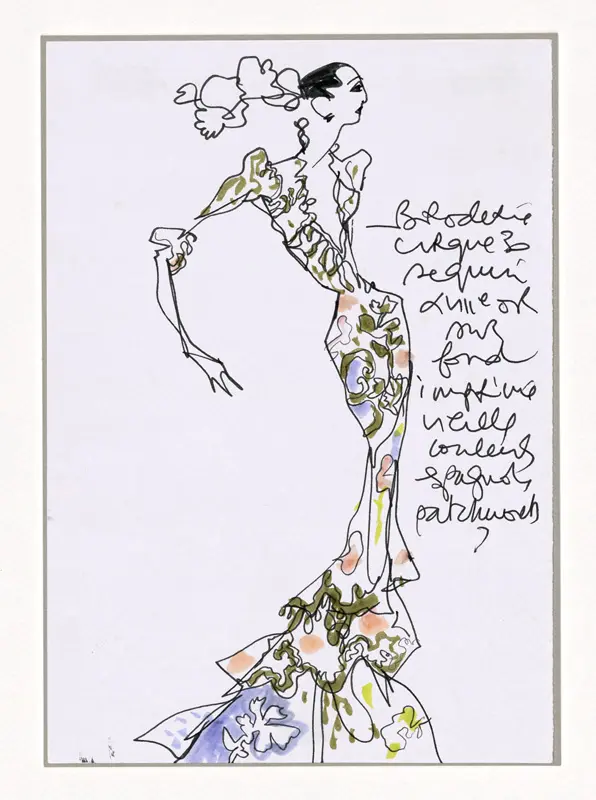 Broderie
cirque 30
sequin
or
sur
fond
imprimé
vieille
couleurs
espagnols
patchwork
?